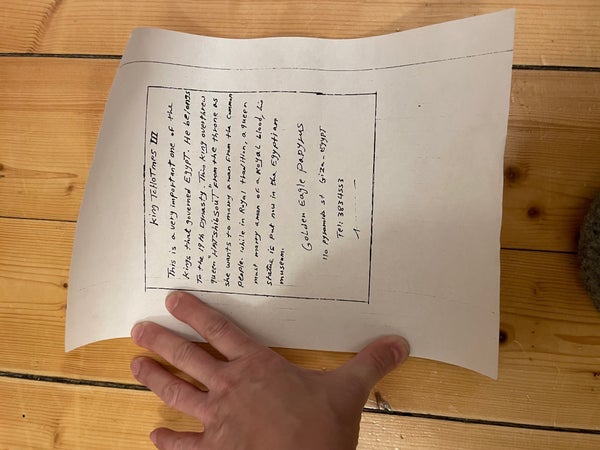 King TEHOTMPS III
This is a very important one of the
Kings that governed EGYPT. He belongs
To the 19th Dynasty. This King overthrew
queen "HATSHIBSOUT" From the throne as
she wants to marry a man From the Common
People. while in Royal tradition, a queen
must marry a man of a Royal blood, his
statue is put now in the Egyptian
museum.
Golden Eagle Papyrus
110 pyramids st Giza - EGYPT
Tel: 3834553